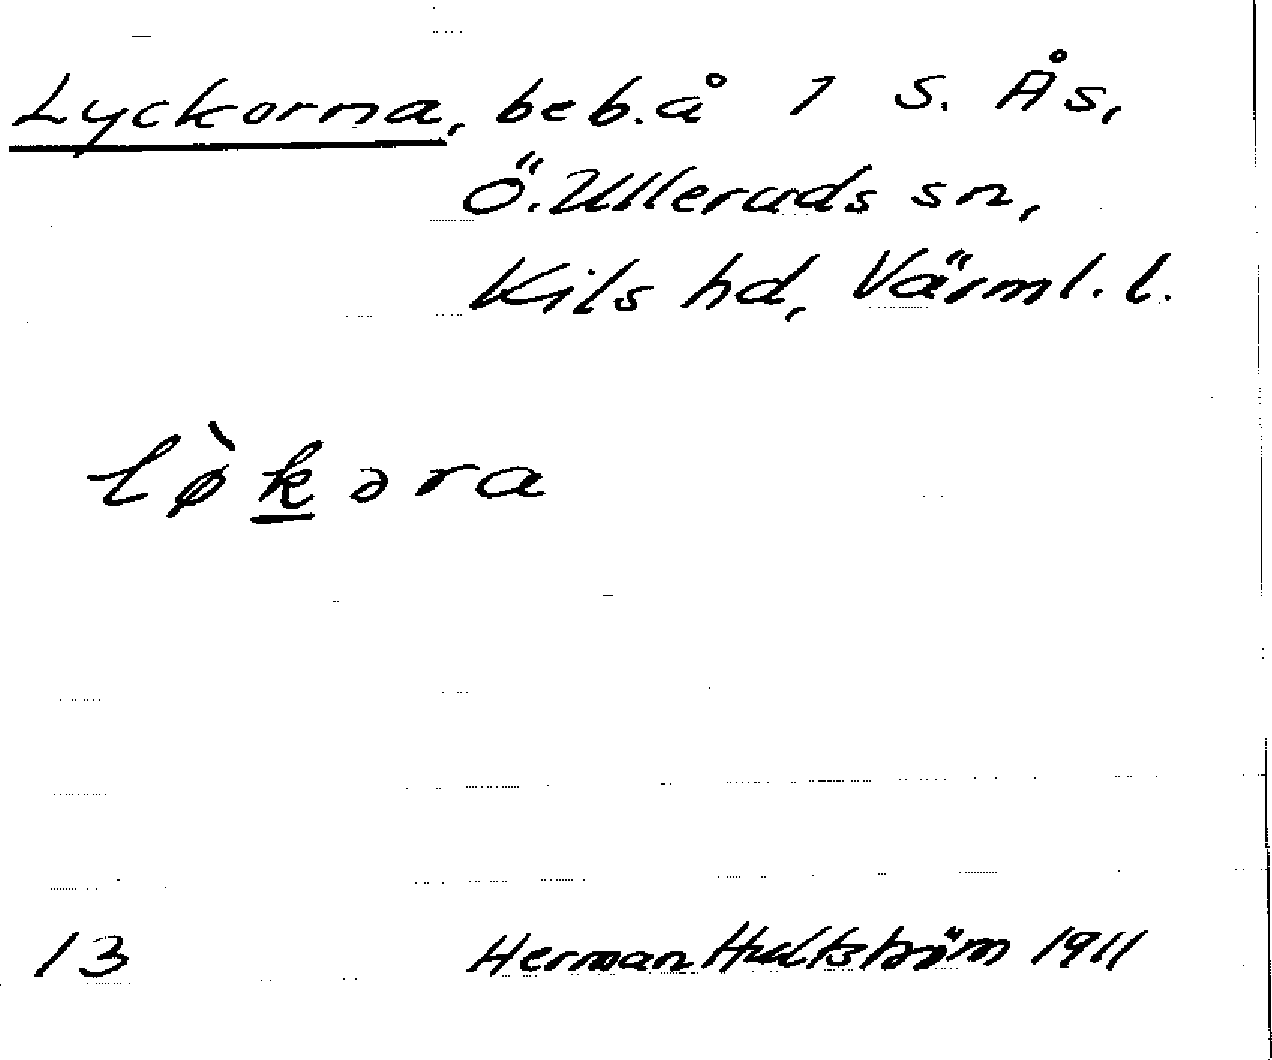 Lyckorna, beb.å 1 S. Ås,
Ö. Ulleruds sn,
Kils hd, Värml. l.
lø̀kəra
13 Herman Hultström 1911